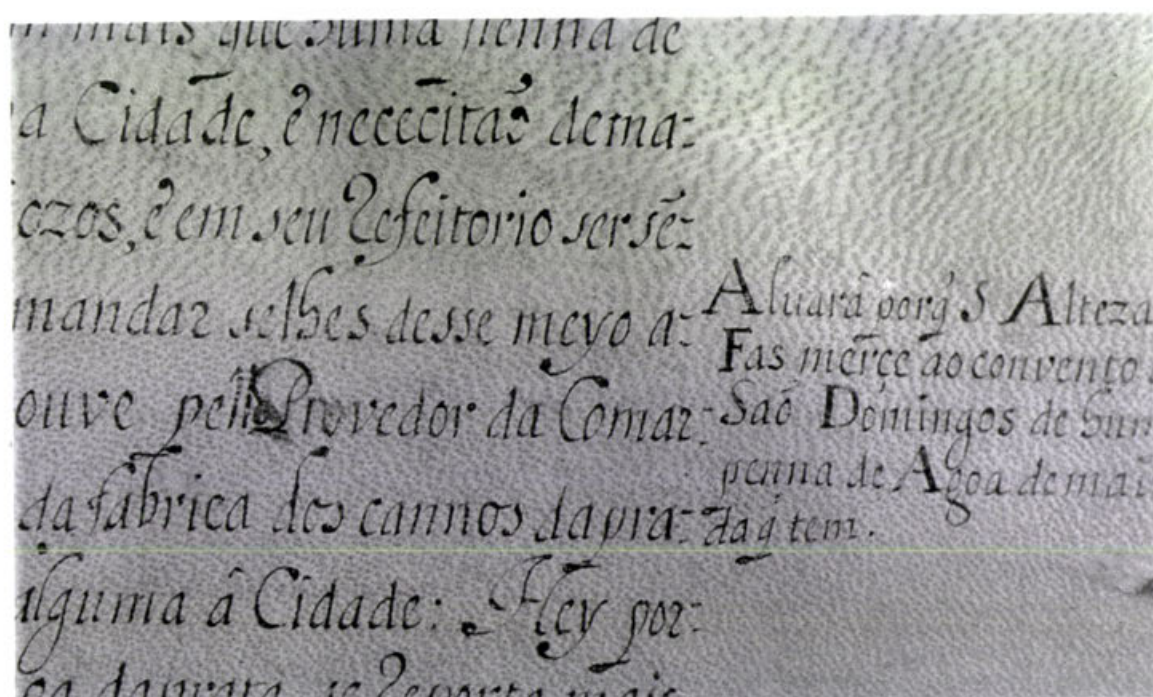 mais que huma penna de
a Cidade, e nececcitaõ de ma-
ozos, e em seu Refeitorio ser sẽ-
mandar selhes desse meyo a-
ouve pello Provedor da Comar-
da fabrica dos cannos da pra-
alguma â Cidade: Hey por-
se Reporta mais
Aluarâ porq̃ S Alteza
Fas merçe ao convento
Saõ Domingos de hum
penna de Agoa de mai
da q̃ tem.